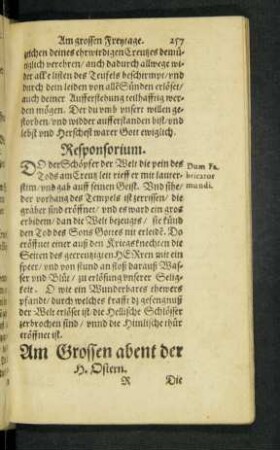 Am grossen Freytage. 257
zeichen deines ehrwirdigen Creutzes demü-
tiglich verehren/ auch dadurch allwege wi-
der alle listen des Teufels beschirmpt/ vnd
durch dem leiden von allē Sünden erlöset/
auch deiner Aufferstehung teilhafftig wer-
den mögen. Der du vmb vnsert willen ge-
storben/ vnd widder aufferstanden bist/ vnd
lebst vnd Herschest warer Gott ewiglich.
Responsorium.
DO der Schöpfer der Welt die pein des
Tods am Creutz leit rieff er mit lauter-
stim/ vnd gab auff seinen Geist. Vnd sihe/
der vorhang des Tempels ist zerrissen/ die
gräber sind eröffnet/ vnd es ward ein gros
erbidem/ dan die Welt bezeugts/ sie künd
den Tod des Sons Gottes nit erleidē. Da
eröffnet einer auß den Kriegsknechten die
Seiten des gecreutzigten HERren mit ein
speer/ vnd von stund an floß darauß Was-
ser vnd Blüt/ zu erlösung vnserer Selig-
keit. O wie ein Wunderbares thewers
pfande/ durch welches krafft dz gefengnuß
der Welt erlöset ist die Hellische Schlösser
zerbrochen sind/ vnnd die Himlische thür
eröffnet ist.
Dum Fa-
bricator
mundi.
Am Grossen abent der
H. Ostern.
R Die